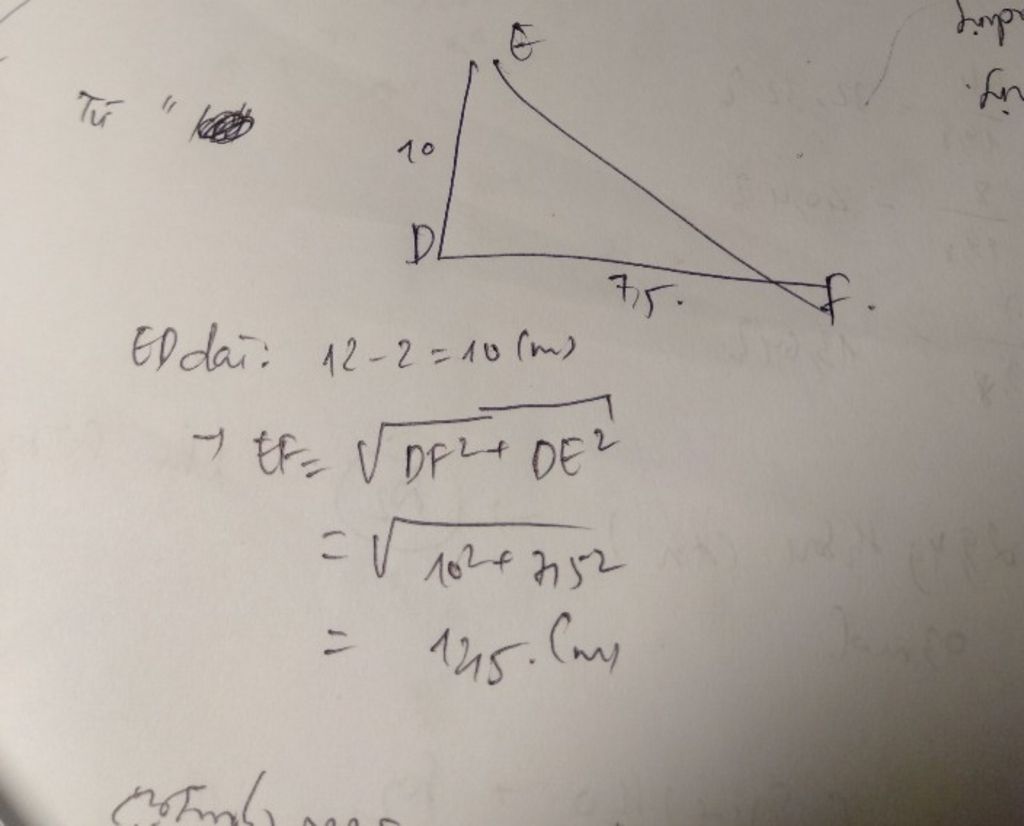 Từ "
E
10
D
7,5.
F.
ED dài: 12 - 2 = 10 (m)
→ EF = √DF² + DE²
= √10² + 7,5²
= 12,5. (m)